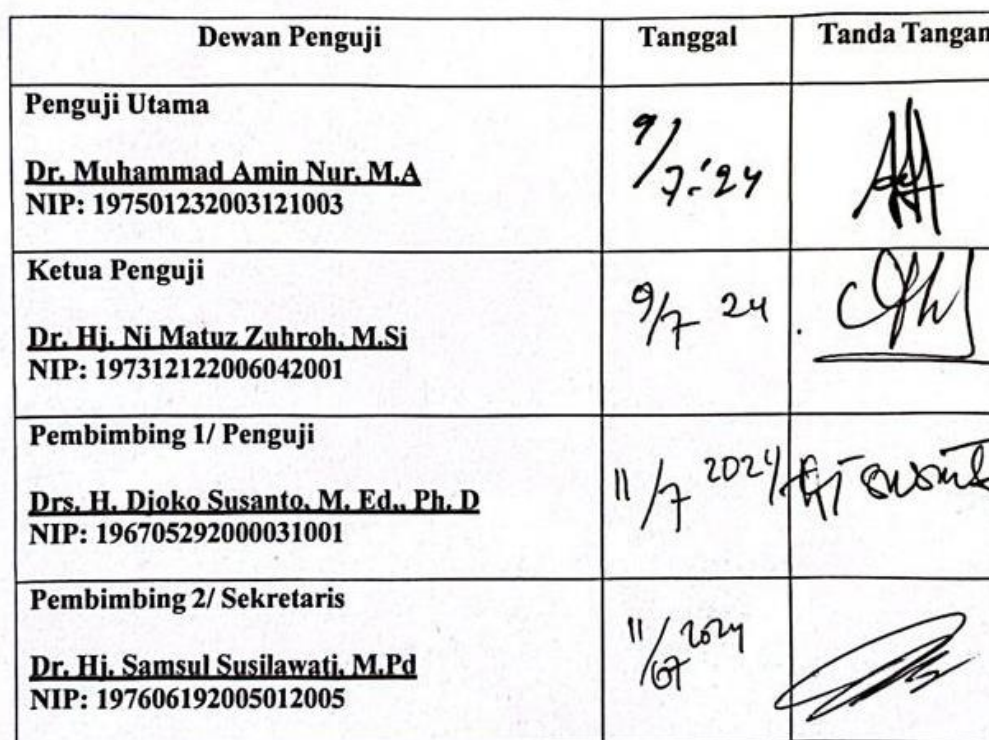 Dewan Penguji Tanggal Tanda Tangan
Penguji Utama
Dr. Muhammad Amin Nur, M.A
NIP: 197501232003121003
9/7-'24
Ketua Penguji
Dr. Hj. Ni Matuz Zuhroh, M.Si
NIP: 197312122006042001
9/7 24
Pembimbing 1/ Penguji
Drs. H. Djoko Susanto, M. Ed., Ph. D
NIP: 196705292000031001
11/7 2024
Pembimbing 2/ Sekretaris
Dr. Hj. Samsul Susilawati, M.Pd
NIP: 197606192005012005
11/07 2024